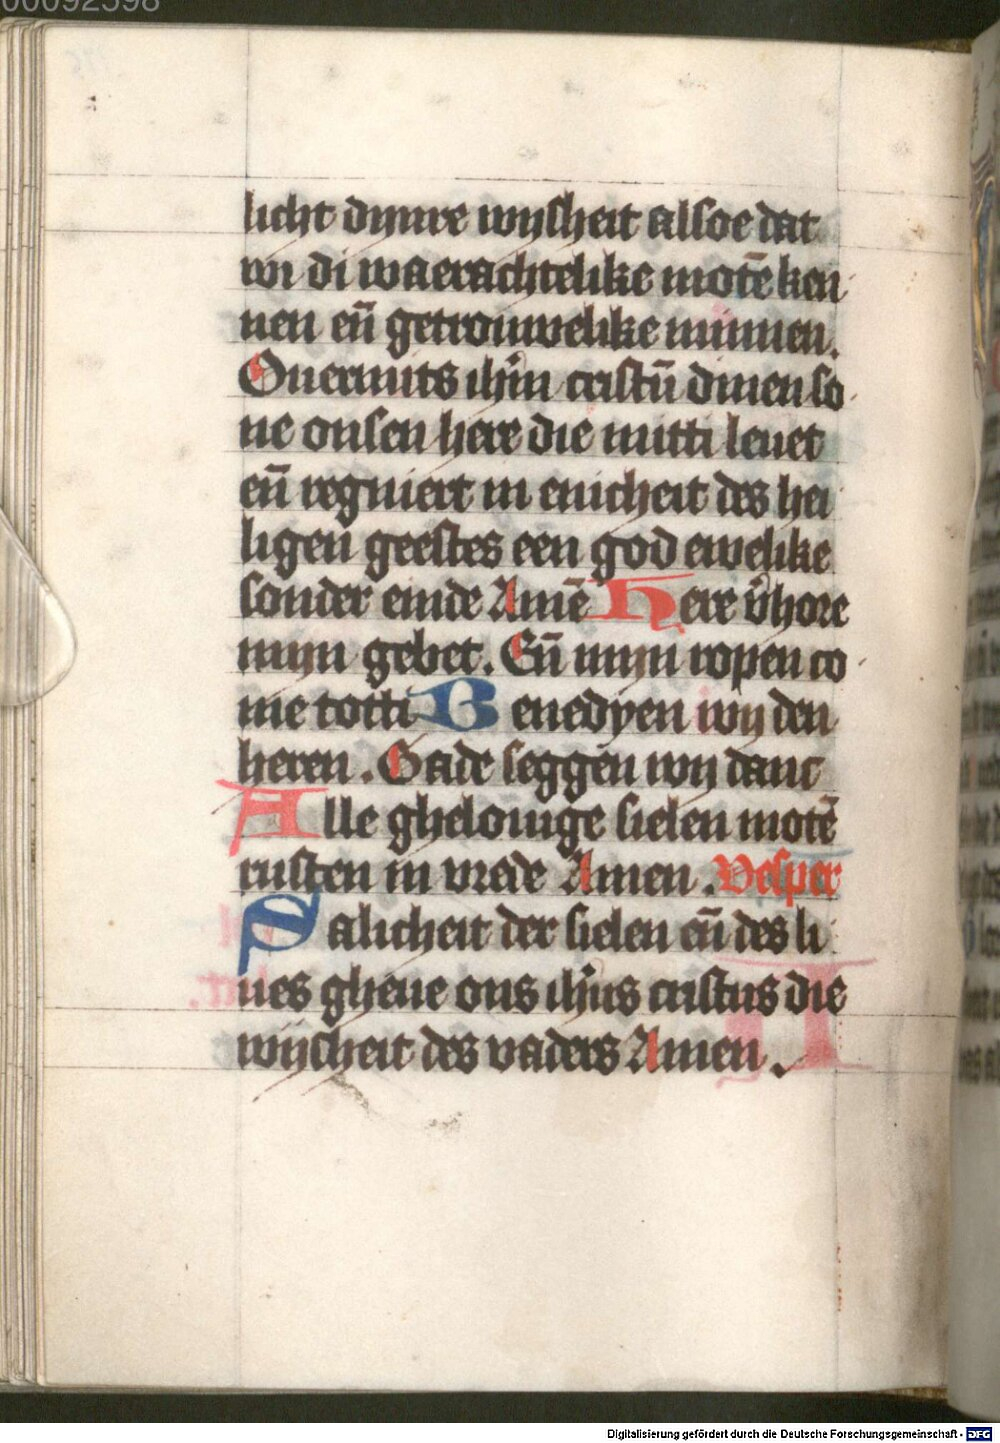 00092598
licht dijnre wijsheit alsoe dat
wi di waerachtelike motē ken
nen eñ getrouwelike minnen.
Ouermits ihm̄ cristū dinen so
ne onsen here die mitti leuet
eñ regniert in enicheit des hei
ligen geestes een god ewelike
sonder einde Amē Here v̄hore
mijn gebet. Eñ mijn ropen co
me totti Benedyen wij den
heren. Gade seggen wij danc
Alle ghelouige sielen motē
rusten in vrede Amen. Vesper
Salicheit der sielen eñ des li
ues gheue ons ihūs cristus die
wijsheit des vaders Amen.
Digitalisierung gefördert durch die Deutsche Forschungsgemeinschaft - DFG